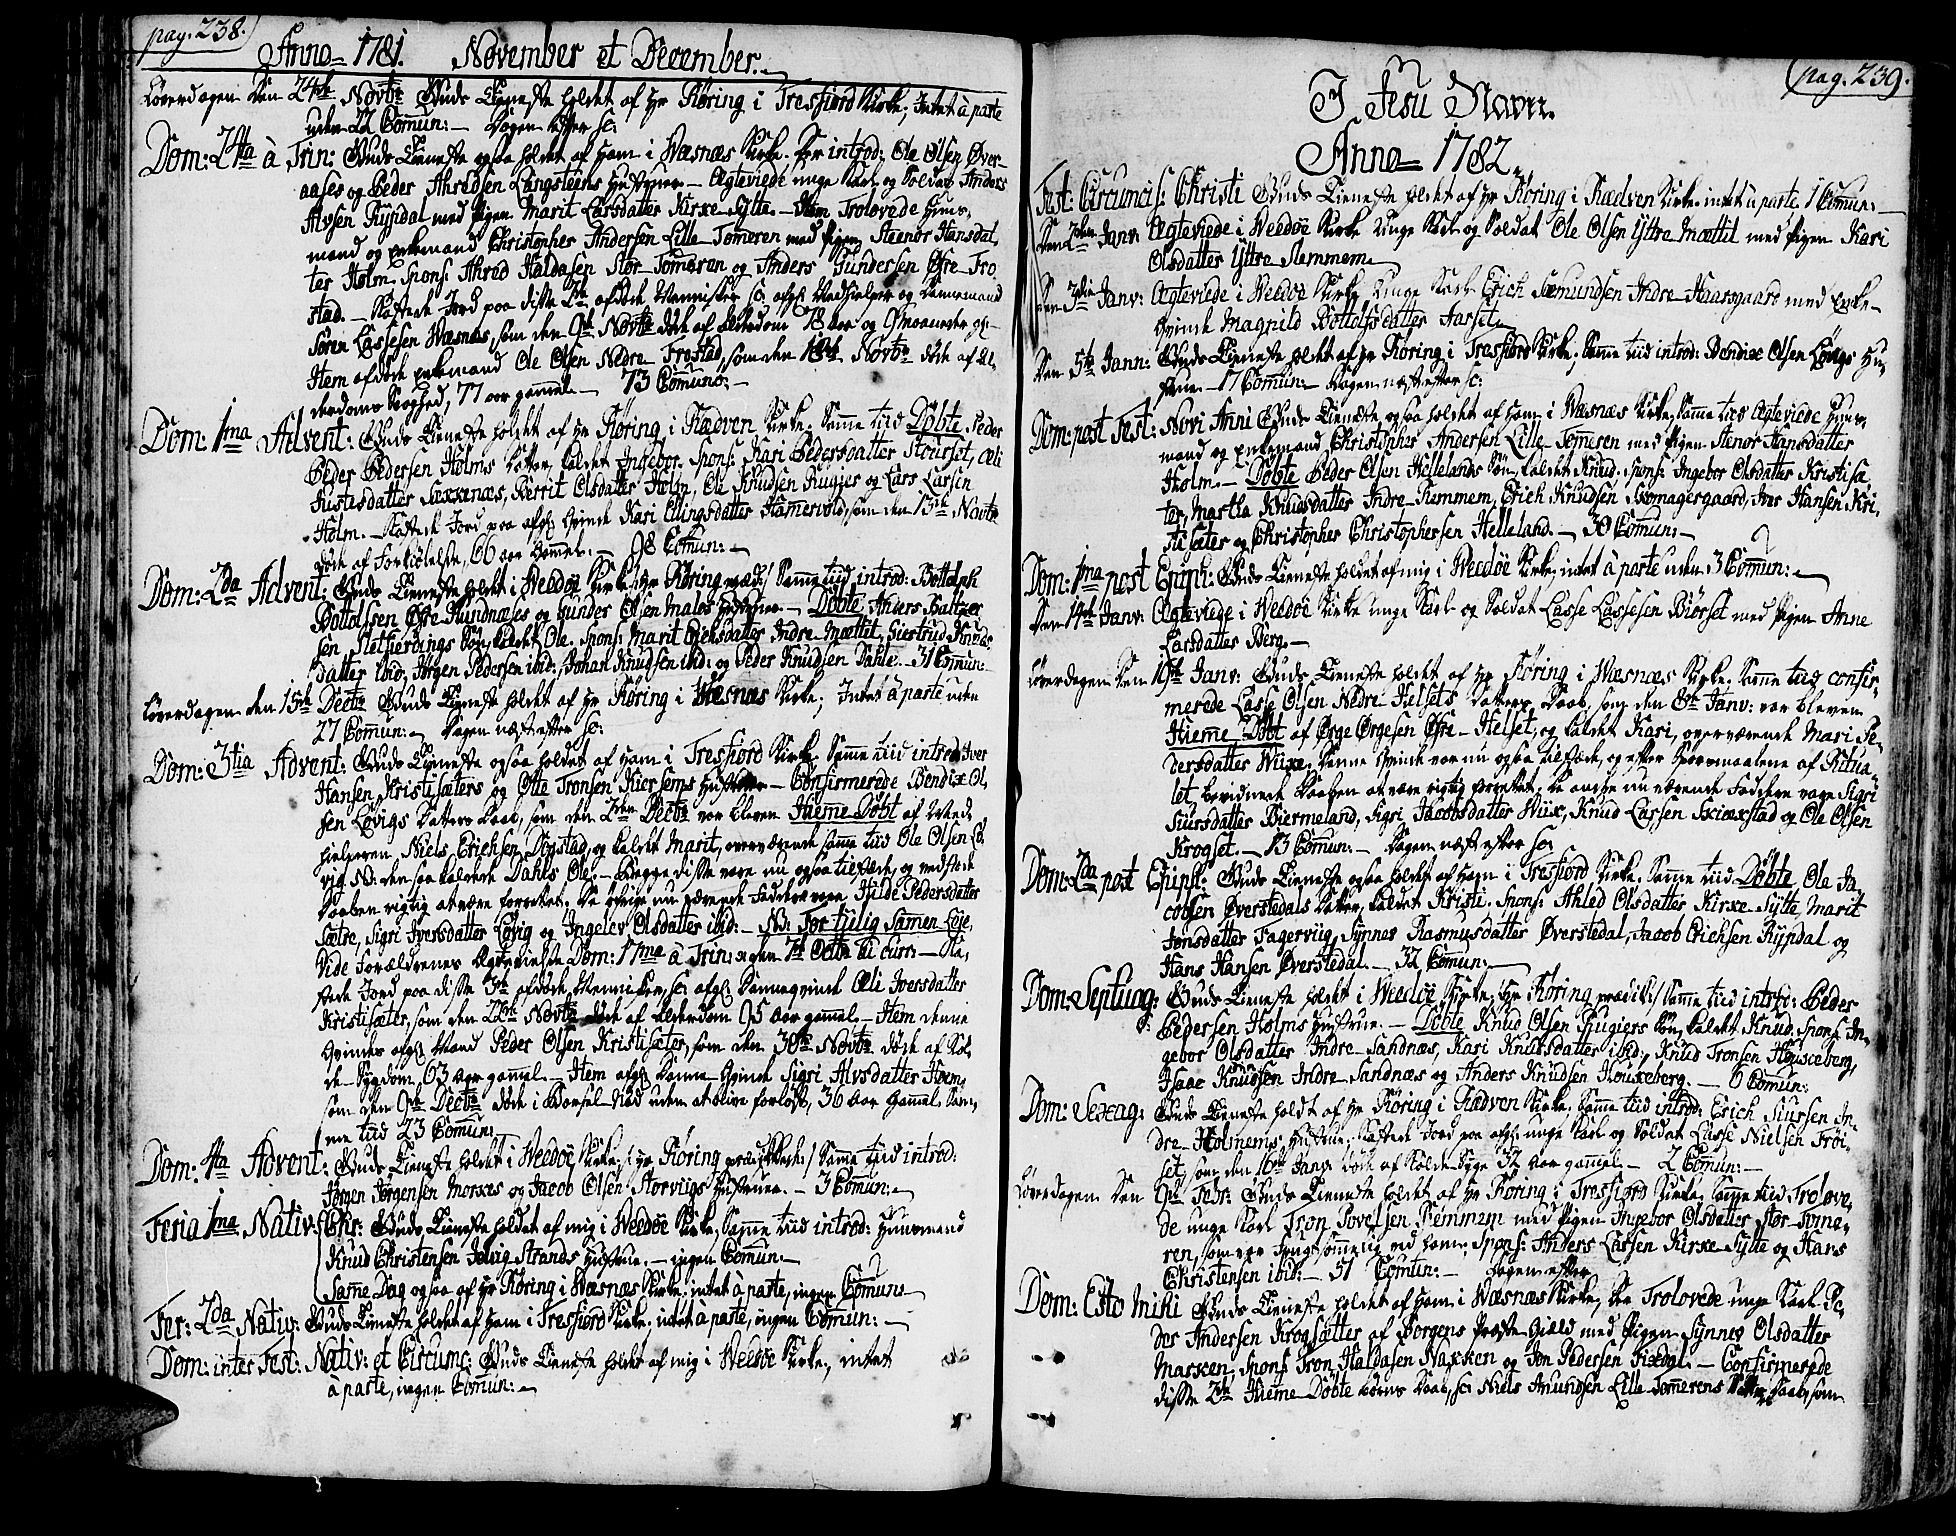 pag. 238.
Anno 1781. November et December.
Løverdagen den 24de Novbr Guds Tieneste holdet af Hr Røring i Tresfiord Kirke; Intet à parte
uden 22 Comun: Dagen efter sc:
Dom: 24ta à Trin: Guds Tieneste ogsaa holdet af Ham i Wæsnæs Kirke. For introd: Ole Olsen Øver-
aases og Peder Ahredsen Langsteens Hustruer. Ægteviede unge Karl og Soldat Anders
Alvsen Rypdal med Pigen Marit Larsdatter Kirke-Sylte. Item Trolovede Huus-
mand og Enkemand Christopher Andersen Lille-Tomeren med Pigen Steenor Hansdat-
ter Holm. Spons: Ahred Haldasen Stor-Tomeren og Anders Gundersen Øfre-Tro
stad. Kastede Jord paa disse 2de afdøde Mennisker sc: afgl. Medhielper og Dannemand
Søren Lassesen Wæsnæs, som den 9de Novbr døde af Alderdom 78 Aar og 9 Maaneder gl.
Item afdøde Enkemand Ole Olsen Nedre Trostad, som den 18de Novbr døde af Al-
derdoms Svaghed, 77 aar gammel. 73 Comun:
Dom: 1ma Advent: Guds Tieneste holdet af Hr Røring i Rødven Kirke. Samme tiid Døbte Peder
Peder Pedersen Holms Datter, kaldet Ingebor. Spons: Kari Pedersdatter Stourset, Æli
Justesdatter Sæxkenæs, Berrit Olsdatter Holm, Ole Knudsen Rugjer og Lars Larsen
Holm. Kastede Jord paa afgl. Qvinde Kari Ellingsdatter Hamervold, som den 13de Novbr
døde af Forkiølelse, 66 aar Gammel. 98 Comun:
Dom: 2da Advent: Guds Tieneste holdet i Weedøe Kirke /: Hr Røring præd: / Samme tiid introd: Bottolph
Bottolfsen Øfre Hundnæses og Gunder Olsen Malos Hustruer. Døbte Anders Baltzer
sen Sletfierdings Søn, kaldet Ole. Spons: Marit Erichsdatter Indre Mættet, Siertrud Knuds-
datter ibid, Jørgen Pedersen ibid:, Johan Knudsen ibid: og Peder Knudsen Dahle. 31 Comun:
Løverdagen den 15de Decbr Guds Tieneste holdet af Hr Røring i Wæsnæs Kirke; Intet à parte uden
27 Comun: Dagen næst efter sc:
Dom: 3tia Advent: Guds Tieneste ogsaa holdet af Ham i Tresfiord Kirke. Samme tiid introd: Iver
Hansen Kristisæters og Otte Tronsen Kiersems Hustruer. Confirmerede Bendix Ol-
sen Løvigs Datters Daab, som den 2den Decbr var bleven Hieme Døbt af Med-
hielperen, Niels Erichsen Dogstad, og kaldet Marit, overværende samme tiid Ole Olsen Lø-
vig NB: den saa kaldede Dahls Ole. Begge disse vare nu ogsaa tilstæde, og vedstode
Daaben rigtig at være forrettet. De øvrige nu værende Faddere vare Hilde Pedersdatter
Sætre, Sigri Iversdatter Løvig og Ingelev Olsdatter ibid: NB: For tjelig Samen Leje,
Vide Forældrenes Ægtevielse Dom: 17ma à Trin: eller 7de Octbr hi curr: Ka-
stede Jord paa disse 3de afdøde Mennisker, sc: afgl. Dannequinde Æli Iversdatter
Kristisæter, som den 22de Novbr døde af Alderdom 95 aar gammel. Item denne
Qvindes afgl. Mand Peder Olsen Kristisæter, som den 30te Novbr døde af Kol-
de-Sygdom, 63 aar gammel. Item afgl. Danne-Qvinde Sigri Alvsdatter Hoem,
som den 9de Decbr døde i Barsel-Nød uden at blive forløst, 36 Aar Gammel. Sam-
me tiid 23 Comun:
Dom: 4ta Advent: Guds Tieneste holdet i Weedøe Kirke, /: Hr Røring prædikkede: / Samme tiid introd:
Jørgen Jørgensen Morxes og Jacob Olsen Storviigs Hustruer. 3 Comun:
Feria 1ma Nativ: Chr: Guds Tieneste holdet af mig i Weedøe Kirke, Samme tiid introd: Huusmand
Knud Christensen Jelvig Strands Hustrue. ingen Comun:
Samme Dag ogsaa af Hr Røring i Wæsnæs Kirke: intet à parte, ingen Comun:
Fer: 2da Nativ: Guds Tieneste holdet af Ham i Tresfiord Kirke. intet à parte, ingen Comun:
Dom: inter Fest: Nativ: et Circumc: Guds Tieneste holdet af mig i Weedøe Kirke, intet
à parte, ingen Comun:
pag. 239.
I Jesu Navn.
Anno 1782.
Fest: Circumcis: Christi Guds Tieneste holdet af Hr Røring i Rødven Kirke. intet à parte 1 Comun:
Den 2den Janv: Ægteviede i Weedøe Kirke unge Karl og Soldat Ole Olsen Yttre Mættet med Pigen Kari
Olsdatter Yttre Slemmem.
Den 3die Janv: Ægteviede i Weedøe Kirke Unge Karl Erich Sæmundsen Indre Haarsgaard med Enke-
Qvinde Magnild Bottolfsdatter Aarset.
Den 5te Janv: Guds Tieneste holdet af Hr Røring i Tresfiord Kirke; Samme tiid introd: Bendix Olsen Løvigs Hu-
strue. 17 Comun: Dagen næst efter sc:
Dom: post Fest: Novi Anni Guds Tieneste ogsaa holdet af Ham i Wæsnæs Kirke, Samme tiid Ægteviede Huus-
mand og Enkemand Christopher Andersen Lille-Tomeren med Pigen Stenor Hansdatter
Holm. Døbte Peder Olsen Hellelands Søn, kaldet Knud. Spons: Ingebor Olsdatter Kristisæ-
ter, Martha Knudsdatter Indre-Remmem, Erich Knudsen Skomagergaard, Iver Hansen Kri-
stisæter og Christopher Christophersen Helleland. 30 Comun:
Dom: 1ma post Epiph: Guds Tieneste holdet af mig i Weedøe Kirke, intet à parte uden 3 Comun:
Den 14de Janv: Ægteviede i Weedøe Kirke unge Karl og Soldat Lasse Lassesen Biørset med Pigen Anne
Larsdatter Berg.
Løverdagen Den 19de Janv: Guds Tieneste holdet af Hr Røring i Wæsnæs Kirke. Samme tiid confir-
merede Lasse Olsen Nedre-Helsets Datters Daab, som den 8de Janv: var bleven
Hieme Døbt af Ørge Ørgesen Øfre-Helset, og kaldet Kari, overværende Mari Pe-
dersdatter Wiixe, denne Qvinde var nu ogsaa tilstæde, og efter Spørsmaalene af Ritua-
let bevidnede Daaben at være rigtig forrettet. De andre nu værende Faddere vare Sigri
Siursdatter Biermeland, Sigri Jacobsdatter Wiix, Knud Larsen Skiæxstad og Ole Olsen
Krogset. 13 Comun: Dagen næst efter sc:
Dom: 2da post Epiph: Guds Tieneste ogsaa holdet af Ham i Tresfiord Kirke. Samme tiid Døbte Ole Ja-
cobsen Øverstedals Datter, kaldet Kristi. Spons: Ahled Olsdatter Kirke-Sylte, Marit
Jonsdatter Fagerviig, Synnev Rasmusdatter Øverstedal, Jacob Erichsen Rypdal og
Hans Hansen Øverstedal. 32 Comun:
Dom: Septuag: Guds Tieneste holdet i Weedøe Kirke, Hr Røring prædik: / Samme tiid introd: Peder
Pedersen Holms Hustrue. Døbte Knud Olsen Rugjers Søn, kaldet Knud. Spons: In-
gebor Olsdatter Indre-Sandnæs, Kari Knudsdatter ibid:, Knud Tronsen Houxeberg,
Isaac Knudsen Indre-Sandnæs og Anders Knudsen Houxeberg. 6 Comun:
Dom: Sexag: Guds Tieneste holdt af Hr Røring i Rødven Kirke. Samme tiid introd: Erich Siursen In-
dre-Holmems Hustrue; Kastede Jord paa afgl. unge Karl og Soldat Lasse Nielsen Trøi-
set, som den 16de Janv: døde af Kolde-Syge 32 aar gammel. 2 Comun:
Løverdagen Den 9de Febr: Guds Tieneste holdet af Hr Røring i Tresfiord Kirke. Samme tiid Trolove-
de unge Karl Tron Povelsen Remmem med Pigen Ingebor Olsdatter Stor-Tome-
ren, som var frugtsommelig ved ham. Spons: Anders Larsen Kirke-Sylte og Hans
Christensen ibid: 51 Comun: Dagen efter
Dom: Esto mihi Guds Tieneste holdet af Ham i Wæsnæs Kirke, Der Trolovede unge Karl Pe-
der Andersen Krogsætter af Borgens Præste-Gield med Pigen Synnev Olsdatter
Masken. Spons: Tron Haldasen Naxken og Jon Pedersen Fixdal. Confirmerede
disse 2de Hieme-Døbte Børns Daab, sc: Niels Amundsen Lille-Tomerens Datters Daab, som